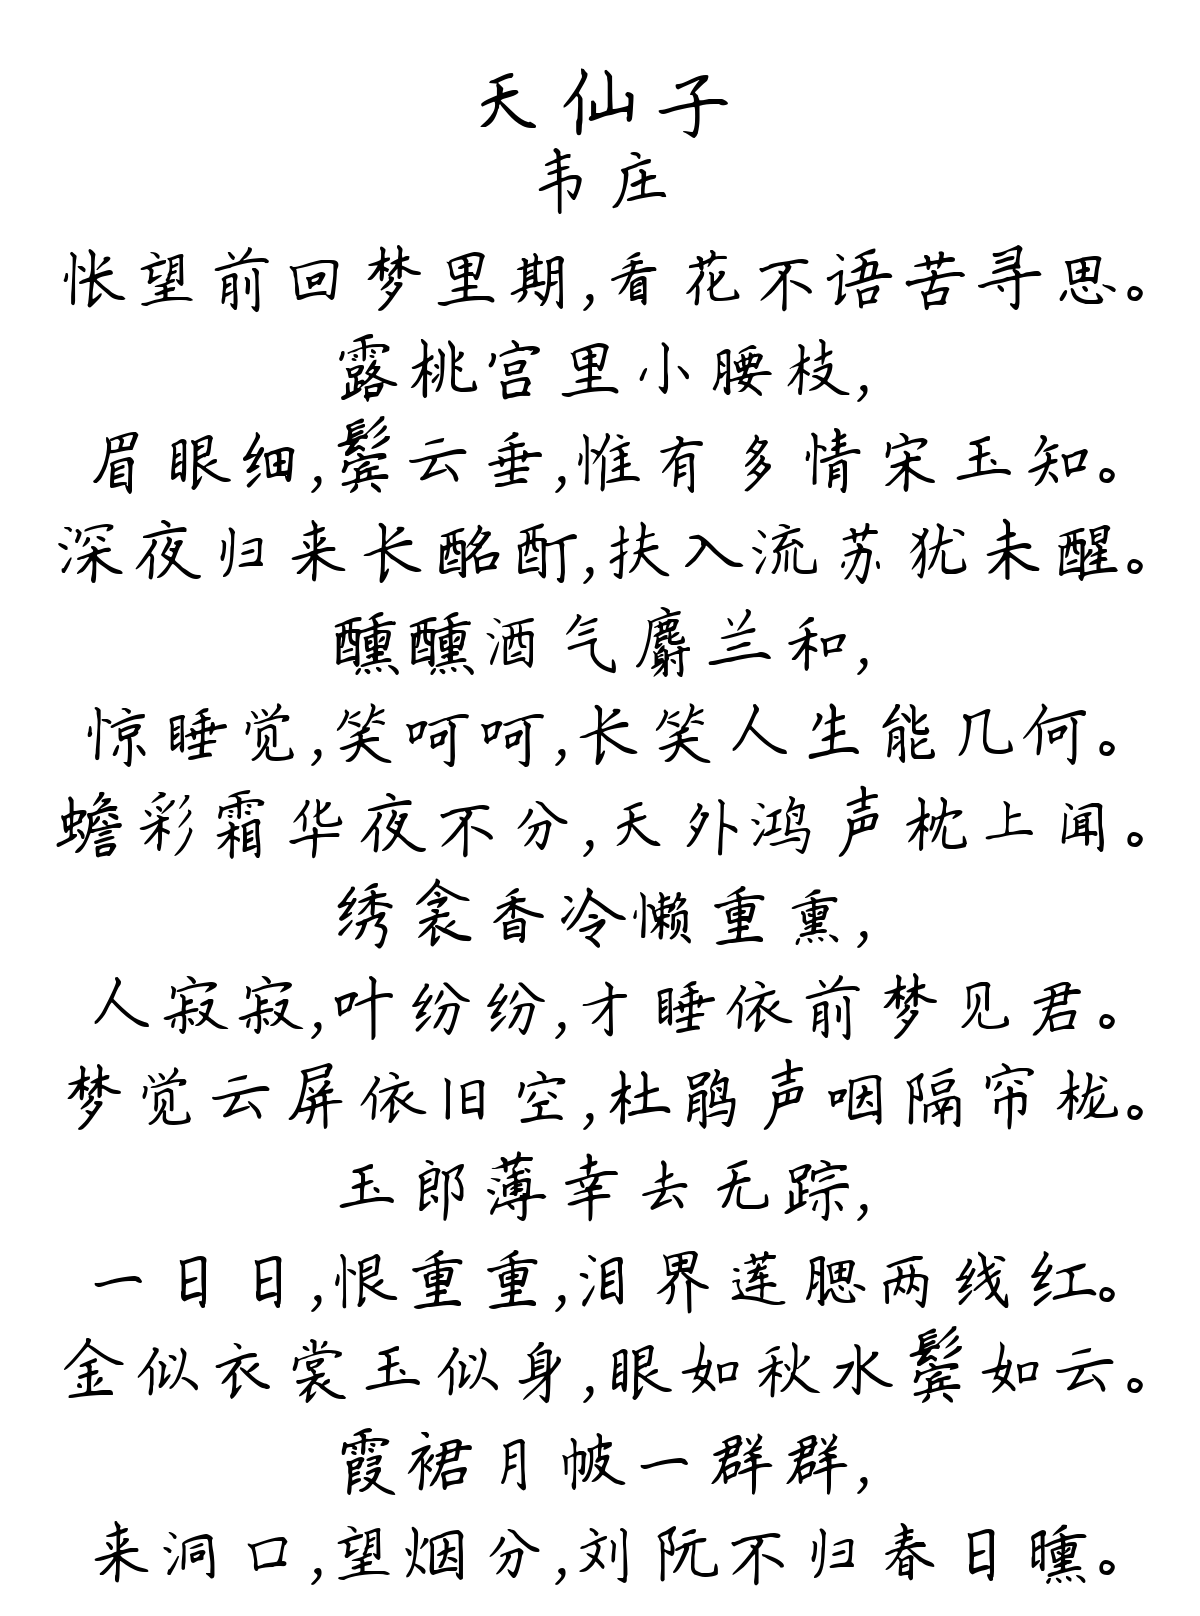 天仙子
韦庄
怅望前回梦里期,看花不语苦寻思。
露桃宫里小腰枝,
眉眼细,鬓云垂,惟有多情宋玉知。
深夜归来长酩酊,扶入流苏犹未醒。
醺醺酒气麝兰和,
惊睡觉,笑呵呵,长笑人生能几何。
蟾彩霜华夜不分,天外鸿声枕上闻。
绣衾香冷懒重熏,
人寂寂,叶纷纷,才睡依前梦见君。
梦觉云屏依旧空,杜鹃声咽隔帘栊。
玉郎薄幸去无踪,
一日日,恨重重,泪界莲腮两线红。
金似衣裳玉似身,眼如秋水鬓如云。
霞裙月帔一群群,
来洞口,望烟分,刘阮不归春日曛。